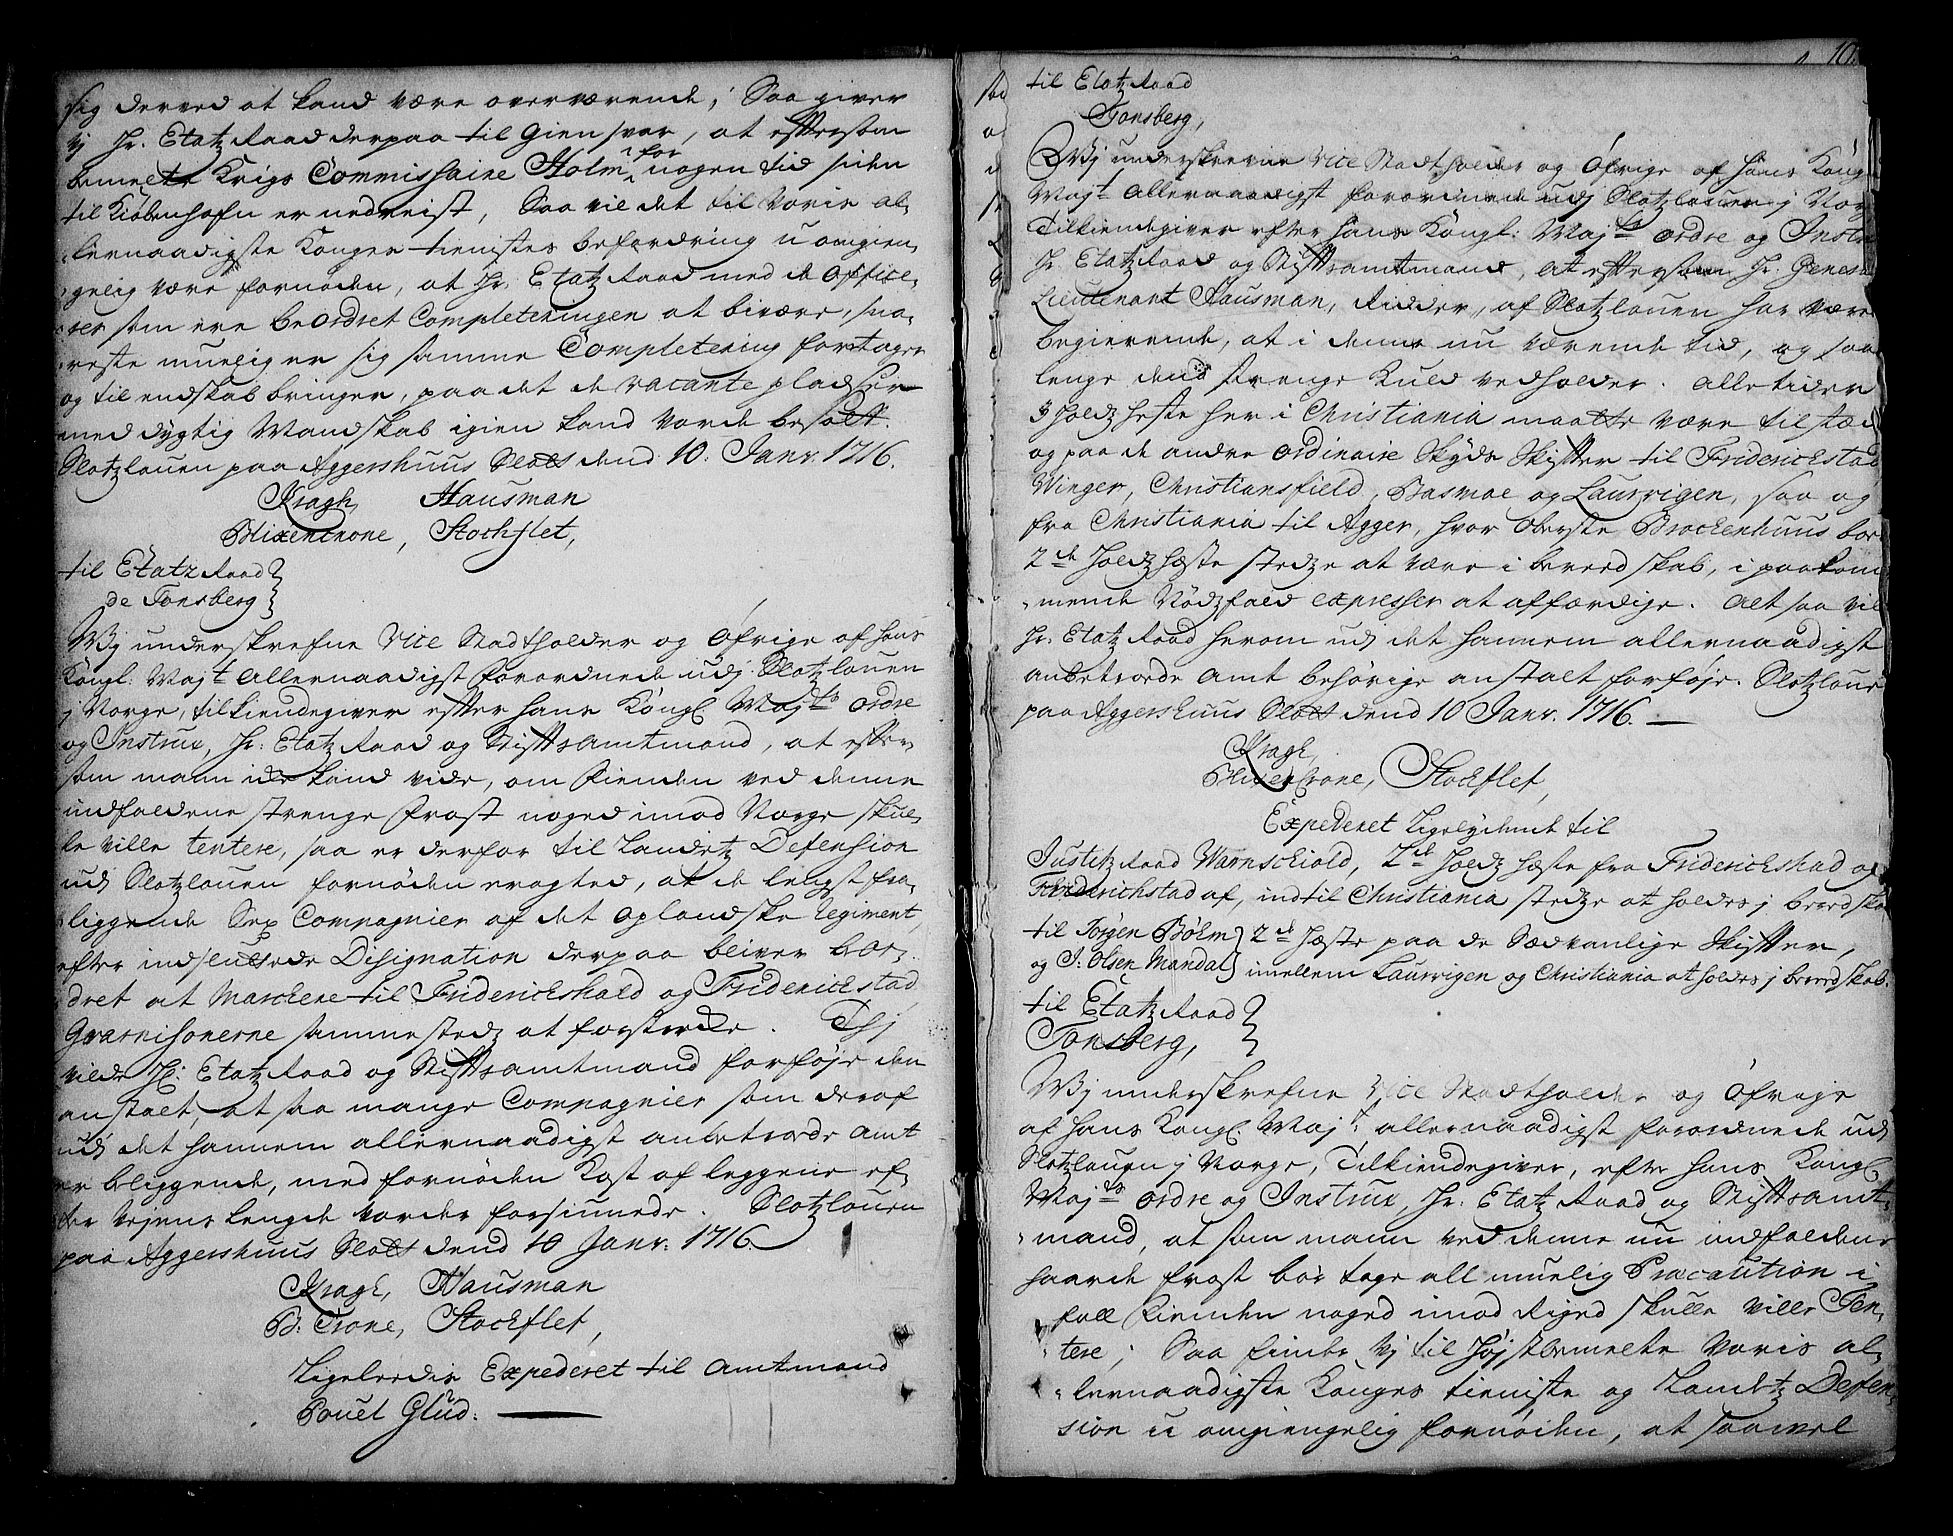 sig derved at kand være overværende; Saa giver
vj Hr. Etatz Raad derpaa til Giensvar, at effterson
bemelte Krigs Commissaire Holm for nogen tid siden
til Kiøbenhafn er nedreist, Saa vil det til Voris al-
lernaadigste Konges tienistes befordring uomgien-
gelig være fornøden, at Hr. Etatz Raad med de office-
rer som ere beordret Completeringen at bivære, sna-
reste muelig er sig samme Completering foretager
og til endskab bringer, paa det de vacante pladser
med dygtig Mandskab igien kand vorde besadt.
Slotzlouen paa Aggershuus Slott dend 10. Janr. 1716.
Kragh, Hausman
Blixencrone, Stochflet,
til Etatz Raad
de Tonsberg
Wj underskrefne Vice Stadtholder og Øfrige af hans
Kongl: Majt Allernaadigst forordnede udj Slotzlouen
j Norge, tilkiendegiver effter hans Kongl Majts ordre
og Instrux, Hr. Etatz Raad og Stifftsamtmand, at effter-
som mann icke kand vide, om fienden ved denne
indfaldene strenge frost noged imod Norge skul-
le ville tentere, saa er derfor til Landetz Defension
udj Slotzlouen fornøden eragted, at de leigst fra-
liggende Sex Compagnier af det oplandske Regiment,
efter indsluttede Disignation derpaa bliver beor-
dret at Marchere til Friderichshald og Friderichstad
Gvarnisonerne sammesteds at forsterke. Thj
vilde Hr: Etatz Raad og Stifftsamtmand forføje den
anstalt, at saa mange Compagnier som deraf
udj det hannem allernaadigst anbetroede Amt
er beliggende, med fornøden Kost af leggene ef-
ter Vejens lengde vorder forsiunede. Slotzlouen
paa Aggershuus Slott dend 10 Janr. 1716.
Kragh, Hausman
B. Crone, Stochflet,
Ligeledis Expederet til Amtmand
Pouel Glud.
10.
til Etatz Raad
Tonsberg,
Wj underskrefne Vice Stadtholder og Øfrige af hans Kongl
Majt Allernaadigst forordnede udj Slotzlouen j Norge
Tilkiendegiver efter hans Kongl: Majts ordre og Instru
Hr. Etatz Raad og Stifftsamtmand, At effterson Hr. General
Lieutenant Hausman, Ridder, af Slotzlouen har være
begierende, at i denne nu værende tid, og saa
lenge dend strenge Kuld vedholder. Alletider
3 Holdz heste her i Christiania maatte være tilstæd
og paa de andre ordinaire Skyds Skiffter til Friderichstad
Winger, Christiansfield, Basmoe og Laurvigen, saa og
fra Christiania til Agger, hvor Oberste Brockenhuus boer
2de Holdz heste stedze at være i beredskab, i paakom-
mende Nødzfald expresser at affærdige. Alt saa vil
Hr. Etatz Raad herom udj det hannem allernaadigst
anbetroede Amt behørige anstalt forføje. Slotzloue
paa Aggershuus Slott dend 10 Janr. 1716.
Kragh,
Blixencrone, Stochflet,
Expederet Ligelydende til
Justitz Raad Warnschiold, 2de Holdz heste fra Friderichshad og
Friderichstad af, indtil Christiania stedze at holdes j beredska
til Jørgen Bølm 2de Heste paa de Sædvanlige Skiffter,
og J: Olsen Mandal imellem Laurvigen og Christiania at holdes j beredskab.
til Etatz Raad
Tonsberg,
Wj underskrefne Vice Stadtholder og Øfrige
af hans Kongl. Majt: allernaadigst forordnede udj
Slotzlouen j Norge, Tilkiendegiver, efter hans Kongl
Majts ordre og Instrux, Hr. Etatz Raad og Stifftsamt-
mand, at som mann ved denne nu indfaldene
haarde frost bør tage all muelig Præcaution i
fall fienden noged imod Riged skulle ville Ten-
tere; Saa finde Vj til Højstbemelte Voris al-
lernaadigste Konges tieniste og Landetz Defen-
sion uomgiengelig fornøden, at saavel